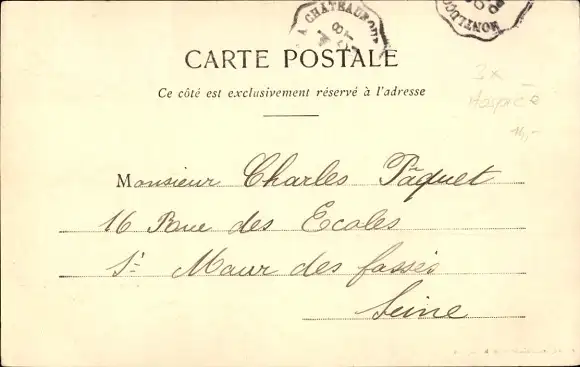 A CHATEAUROUX
MONTLUCO
CARTE POSTALE
Ce côté est exclusivement réservé à l'adresse
3x
Hospice
16,-
Monsieur Charles Pâquet
16 Rue des Ecoles
St Maur des fassés
Seine